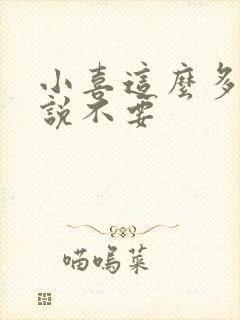 小喜這麼多
說不要
喵嗚菜